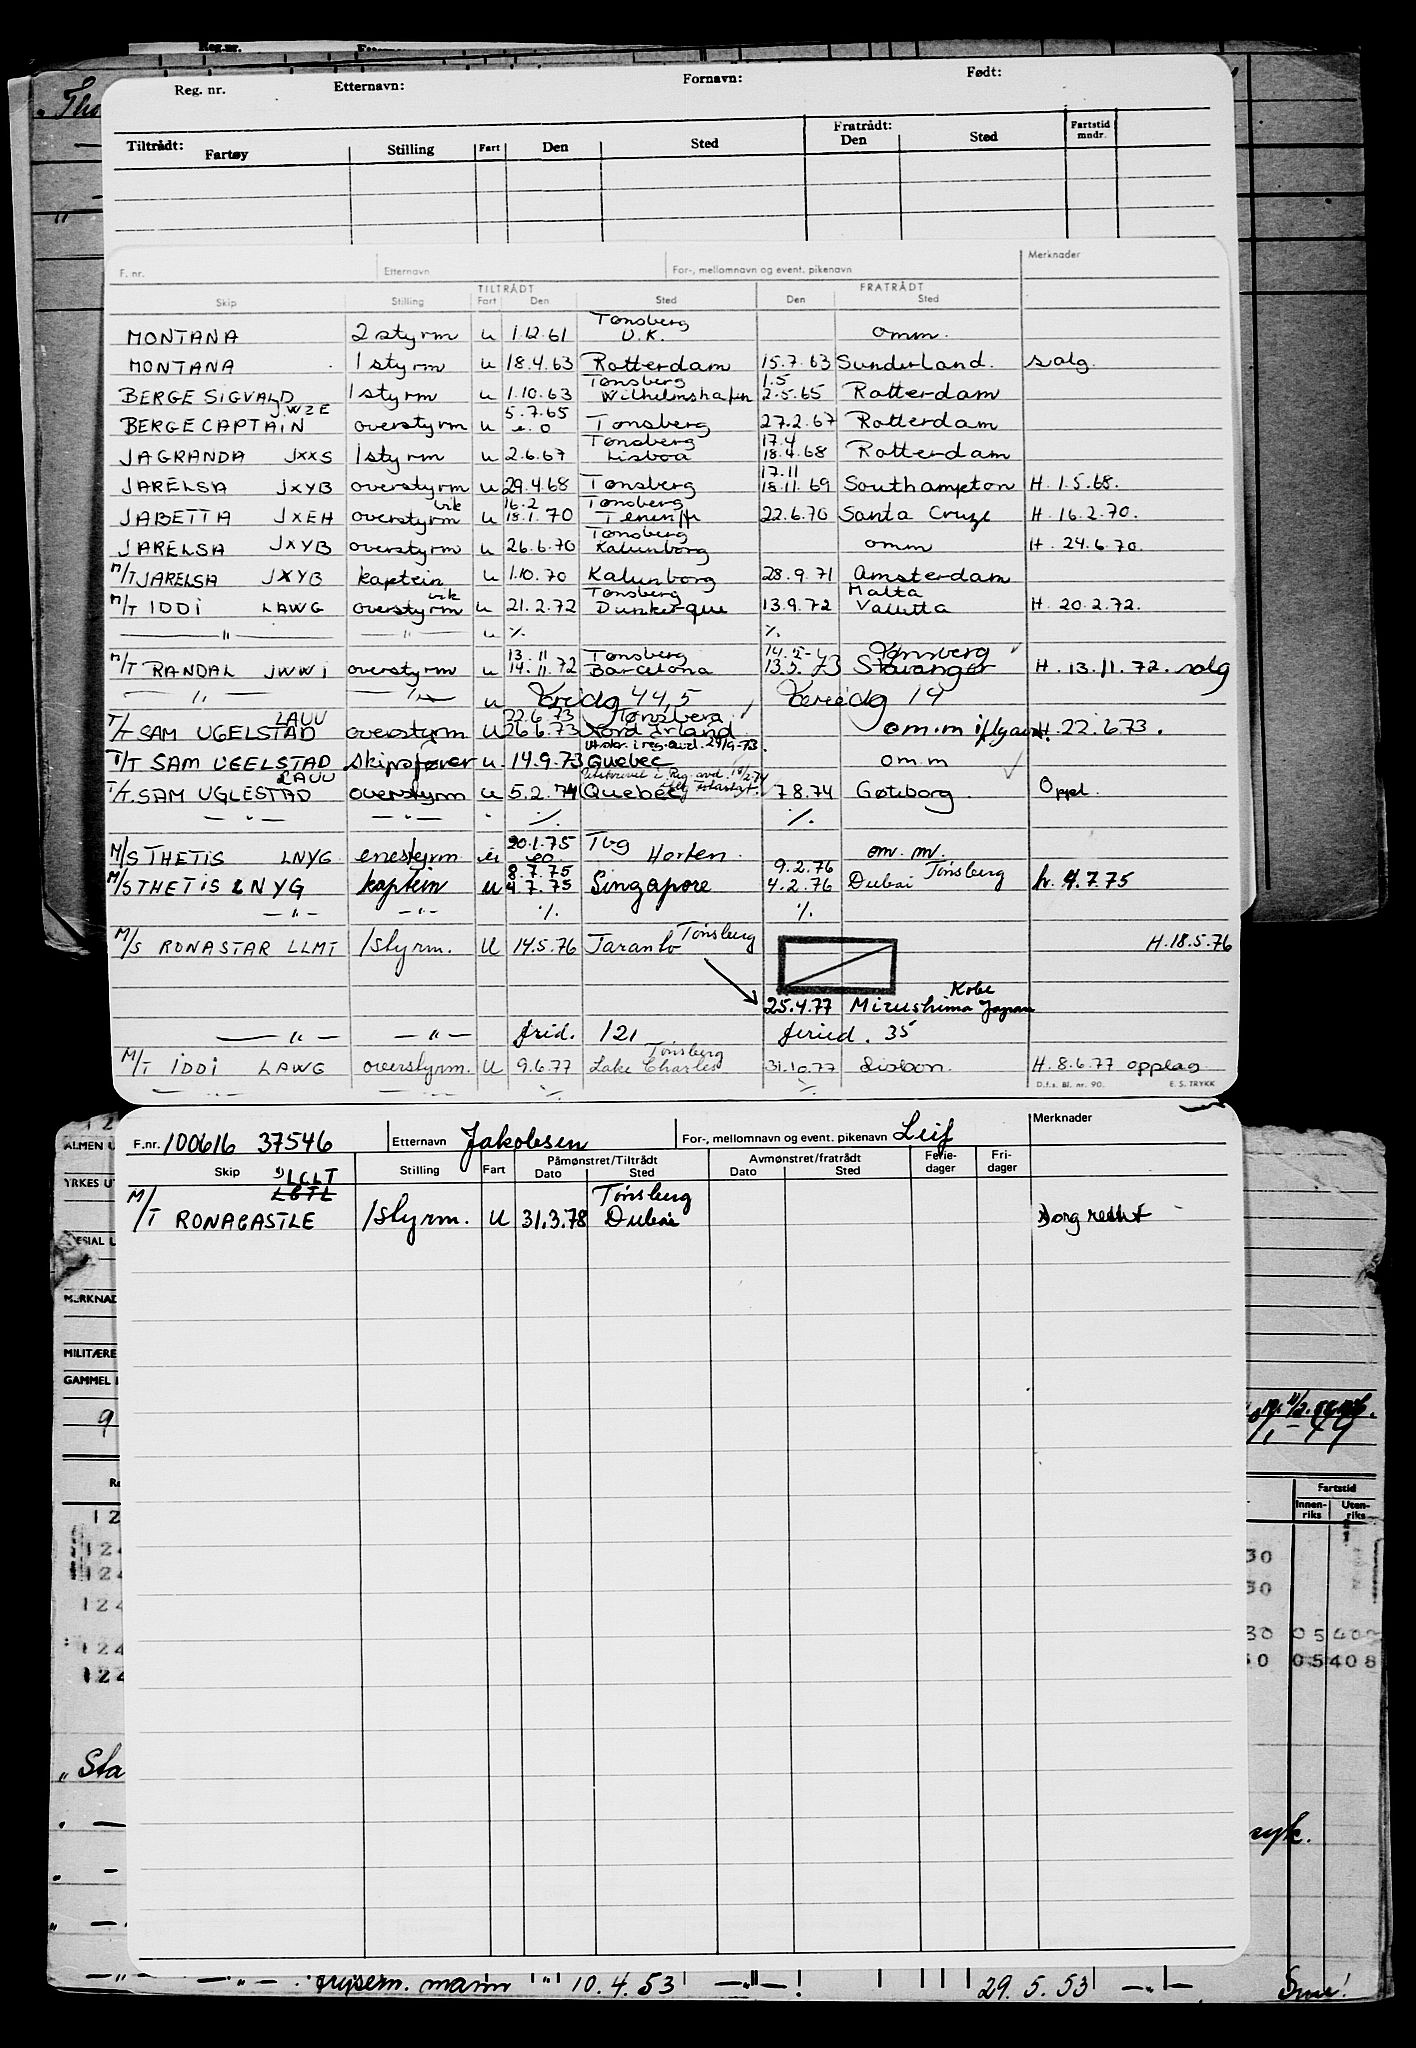 Reg. nr. Etternavn: Fornavn: Født:
Tiltrådt: Fratrådt:
Fartøy Stilling Fart Den Sted Den Sted Fartstid mndr.
F. nr. Etternavn For-, mellomnavn og event. pikenavn Merknader
TILTRÅDT FRATRÅDT
Skip Stilling Fart Den Sted Den Sted
MONTANA 2 styrm u 1.12.61 Tønsberg U.K. omm.
MONTANA 1 styrm u 18.4.63 Rotterdam 15.7.63 Sunderland. salg.
BERGE SIGVALD 1 styrm u 1.10.63 Tønsberg Wilhelmshafen 1.5 2.5.65 Rotterdam
BERGE CAPTAIN JWZE overstyrm u 5.7.65 e.o Tønsberg 27.2.67 Rotterdam
JAGRANDA JXXS 1 styrm u 2.6.67 Tønsberg Lisboa 17.4 18.4.68 Rotterdam
JARELSA JXYB overstyrm u 29.4.68 Tønsberg 17.11 18.11.69 Southampton H. 1.5.68.
JABETTA JXEH overstyrm vik u 16.2 18.1.70 Tønsberg Teneriffe 22.6.70 Santa Cruze H. 16.2.70.
JARELSA JXYB overstyrm u 26.6.70 Tønsberg Kalunborg omm H. 24.6.70.
M/T JARELSA JXYB kaptein u 1.10.70 Kalunborg 28.9.71 Amsterdam
M/T IDDI LAWG overstyrm vik u 21.2.72 Tønsberg Dunkerque 13.9.72 Malta Valutta H. 20.2.72.
— " — — " — u ٪ ٪
M/T RANDAL JWWI overstyrm u 13.11 14.11.72 Tønsberg Barcelona 14.5 13.5.73 Tønsberg Stavanger H. 13.11.72. salg
— " — — " — u Feriedg 44,5 Feriedg 14
T/T SAM UGELSTAD LAUU overstyrm u 22.6.73 26.6.73 Tønsberg Nord Irland om.m H. 22.6.73.
T/T SAM UGELSTAD skipsfører u. 14.9.73 Quebec om m
T/T. SAM UGLESTAD LAUU overstyrm u 5.2.74 Quebec 7.8.74 Gøteborg. Oppl.
— " — — " — " ٪. ٪.
M/S THETIS LNYG enestyrm 20.1.75 eo Tbg Horten. om. m.
M/S THETIS LNYG kaptein u 8.7.75 4.7.75 Singapore 9.2.76 4.2.76 Dubai Tønsberg h. 4.7.75
— " — — " — ٪. ٪.
M/S RONASTAR LLMT 1 styrm. U 14.5.76 Taranto Tønsberg H.18.5.76
25.4.77 Mizushima Japan Kobe
— " — — " — frid. 121 feried. 35
M/T IDDI LAWG overstyrm. U 9.6.77 Tønsberg Lake Charles 31.10.77 Lisbon. H. 8.6.77 opplag
D.f.s. Bl. nr. 90. E. S. TRYKK
F.nr. 100616 37546 Etternavn Jakobsen For-, mellomnavn og event. pikenavn Leif Merknader
Skip Stilling Fart Påmønstret/Tiltrådt Dato Sted Avmønstret/fratrådt Dato Sted Ferie-dager Fri-dager
M/T RONACASTLE LCLT 1 styrm. U 31.3.78 Tønsberg Dubai
MILITÆRE
GAMMEL
Fartstid
Innen-riks Uten-riks
05408
„ Sta
syk.
— " — — " — mann " 10.4.53 — " — 29.5.53 — " —